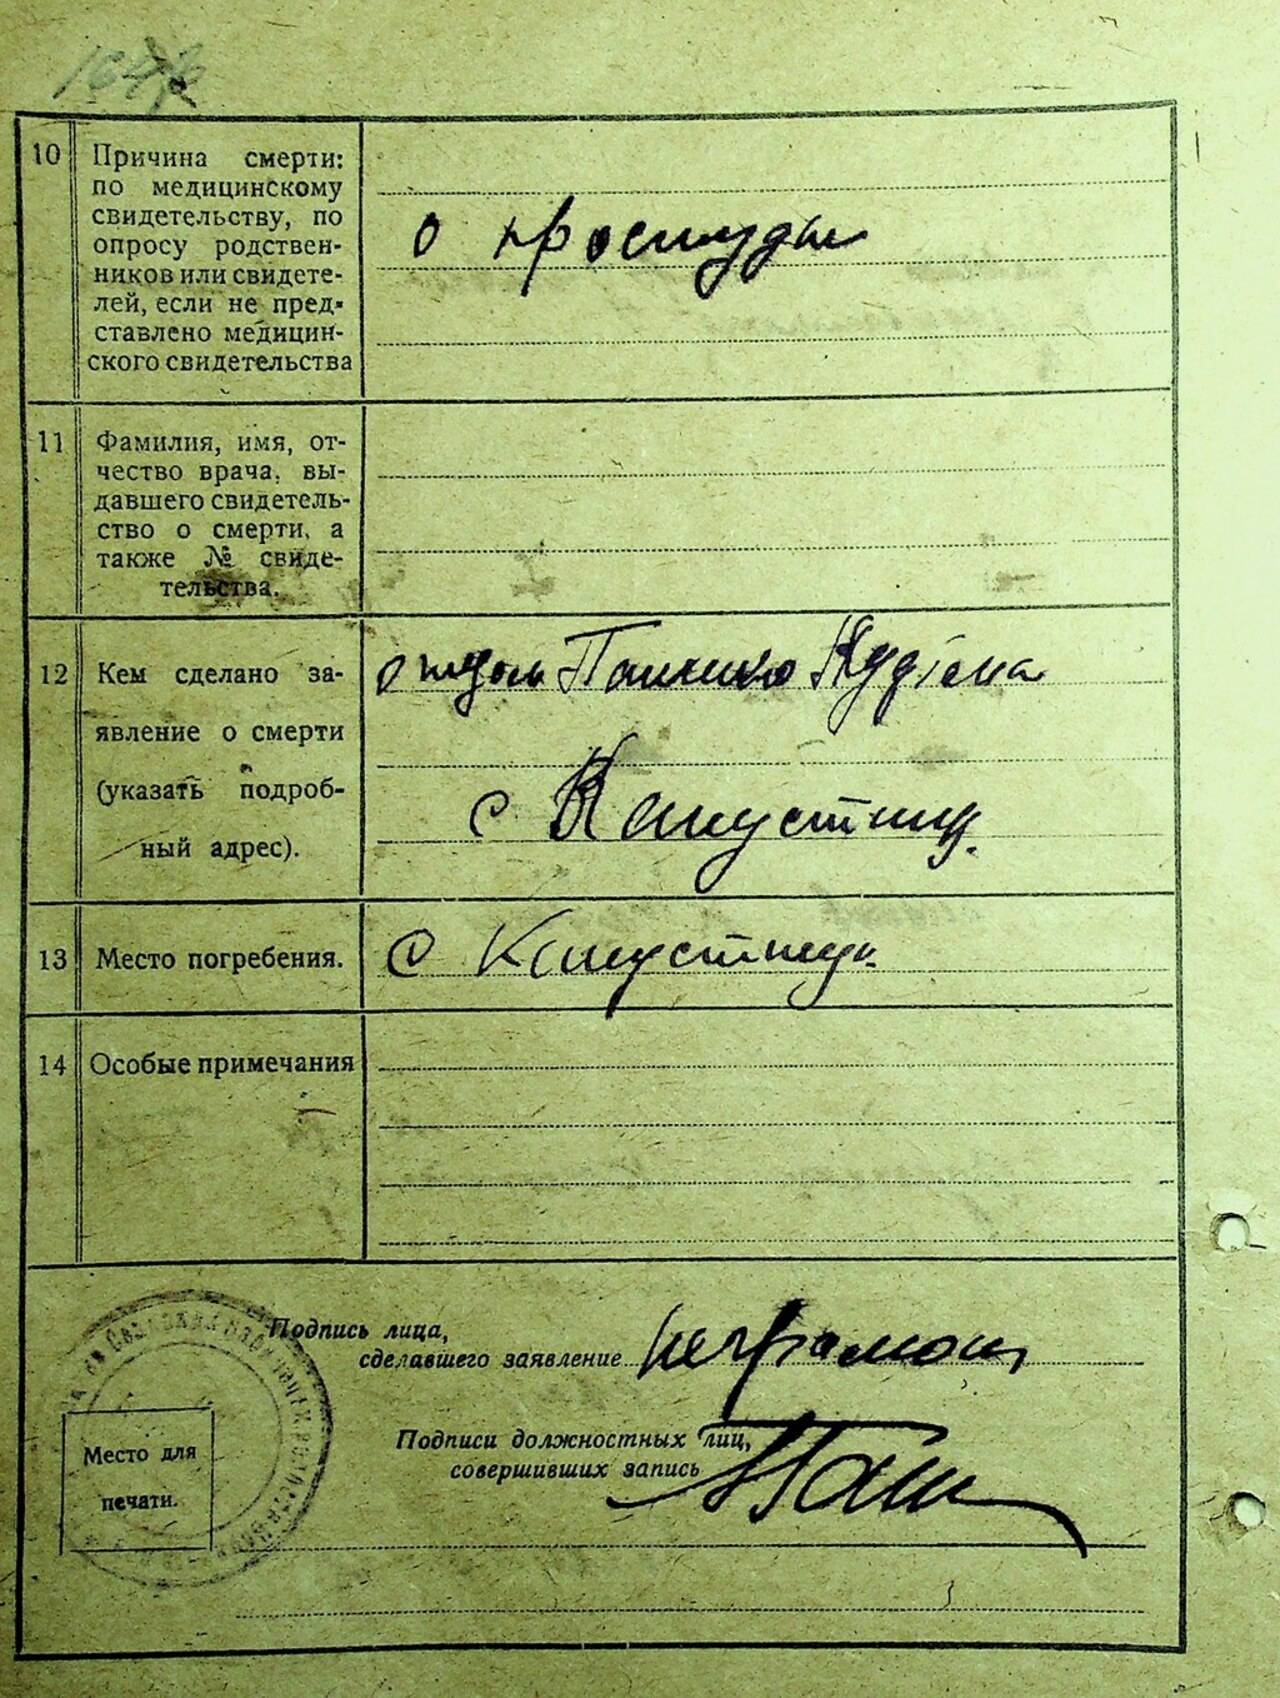 10 Причина смерти:
по медицинскому
свидетельству, по
опросу родствен-
ников или свидете-
лей, если не пред-
ставлено медицин-
ского свидетельства
о простуды
11 Фамилия, имя, от-
чество врача, вы-
давшего свидетель-
ство о смерти, а
также № свиде-
тельства.
12 Кем сделано за-
явление о смерти
(указать подроб-
ный адрес).
с Капустинц.
13 Место погребения.
с Капустинц.
14 Особые примечания
Подпись лица,
сделавшего заявление неграмот
Подписи должностных лиц,
совершивших запись
Место для
печати.